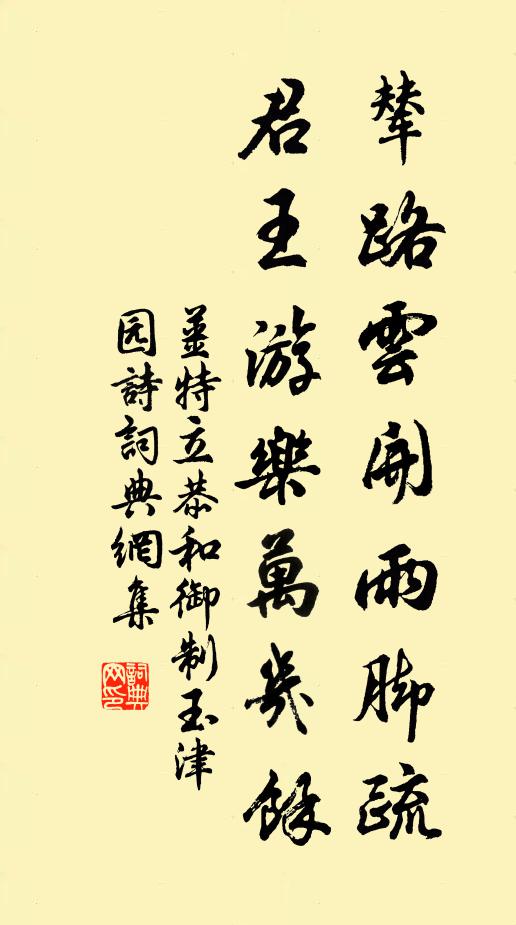 輦路雲開雨脚疏
君王游樂萬幾餘
姜特立恭和御制玉津
园詩詞典網集
詞典網印